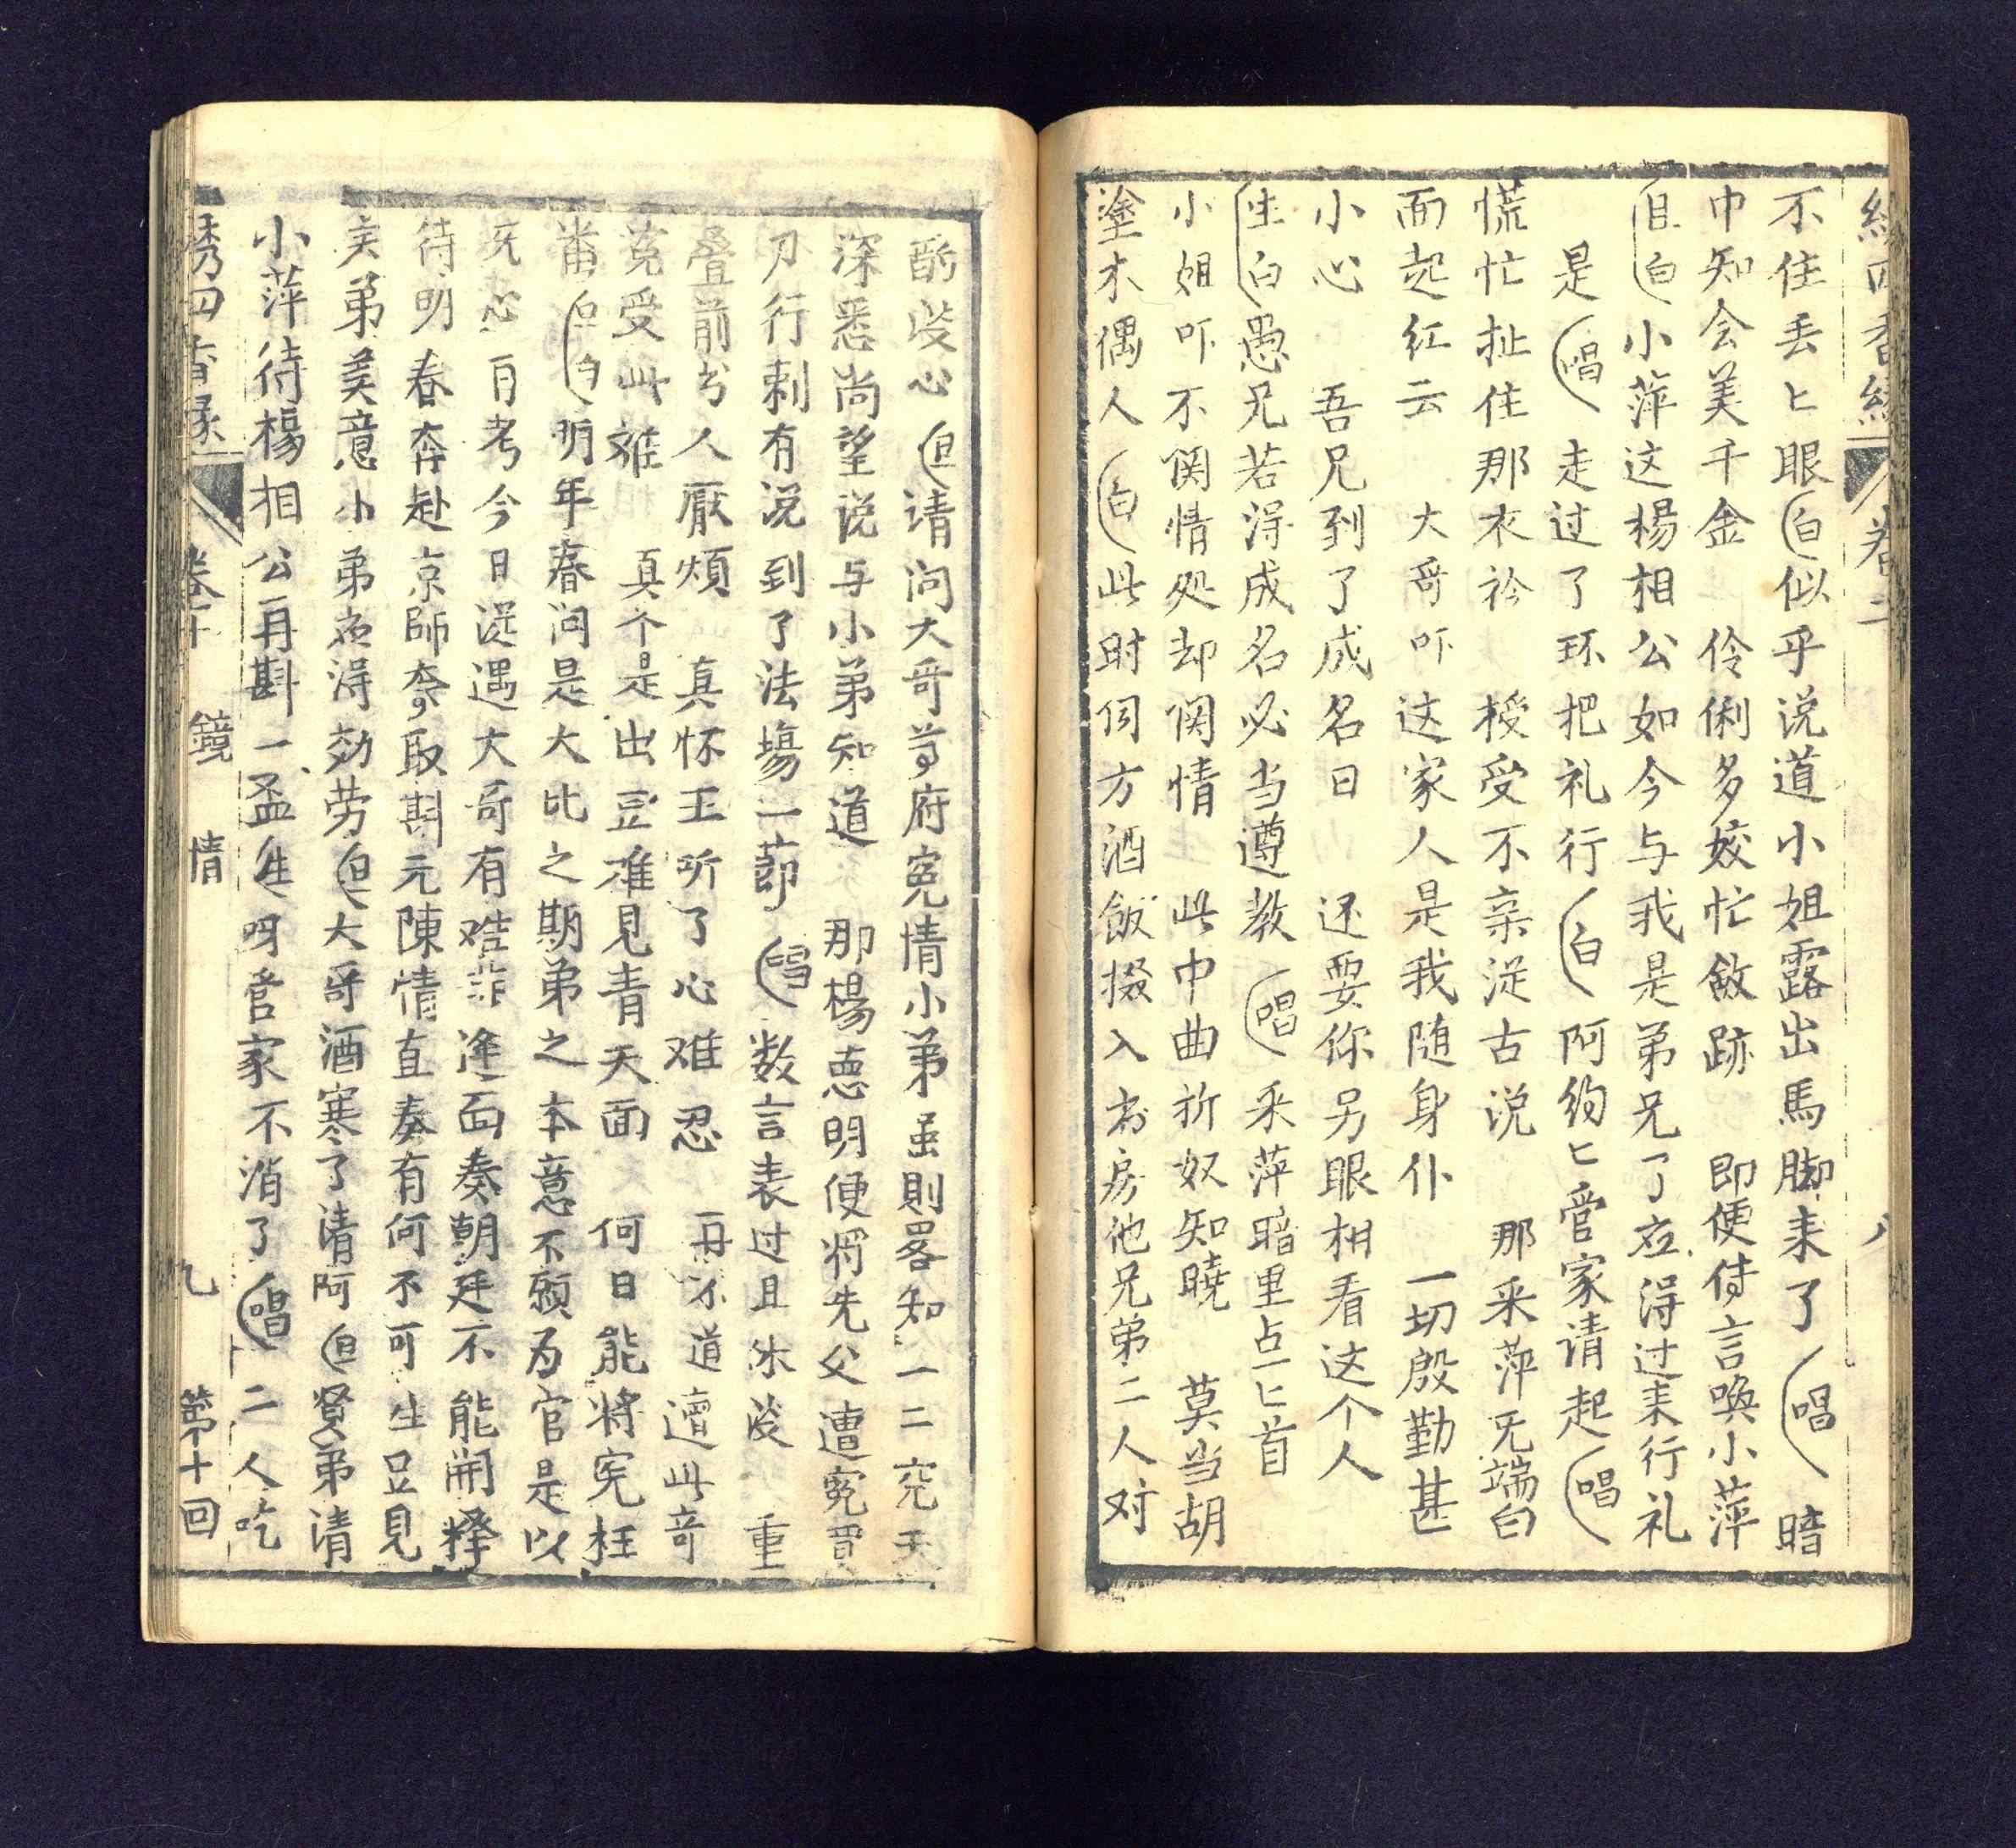 卷二 八
不住丢匕眼(白)似乎说道小姐露出馬脚来了(唱)暗
中知会美千金 伶俐多姣忙敛跡 即便侍言唤小萍
(旦白)小萍这楊相公如今与我是弟兄了应得过来行礼
是(唱)走过了环把礼行(白)阿約匕管家请起(唱)
慌忙扯住那衣衿 授受不亲従古说 那采萍无端白
面起红云 大哥吓这家人是我随身仆 一切殷勤甚
小心 吾兄到了成名日 还要你另眼相看这个人
(生白)愚兄若淂成名必当遵教(唱)采萍暗里点匕首
小姐吓不関情处却関情 此中曲折奴知曉 莫当胡
塗木偶人(白)此时伺方酒飯掇入书房他兄弟二人对
酌谈心(旦)请问大哥尊府寃情小弟虽則畧知一二究天
深悉尚望说与小弟知道 那楊德明便将先父遭寃買
刀行刺有说到了法塲一節(唱)数言表过且休谈 重
叠前岁人厭煩 真怀王听了心难忍 再不道遭此奇
寃受此难 真个是出豆难見青天面 何日能将寃枉
番(旦白)明年春问是大比之期弟之本意不願为官是以
旡心 考今日従遇大哥有 逢面奏朝廷不能開释
待明春奔赴京師奪取斟元陳情直奏有何不可生足見
美弟美意小弟应淂効劳(旦)大哥酒寒了请阿(旦)賢弟请
小萍待楊相公再斟一盃(生)呀管家不消了(唱)二人吃
绣四香缘 卷十 鏡情 九 第十回